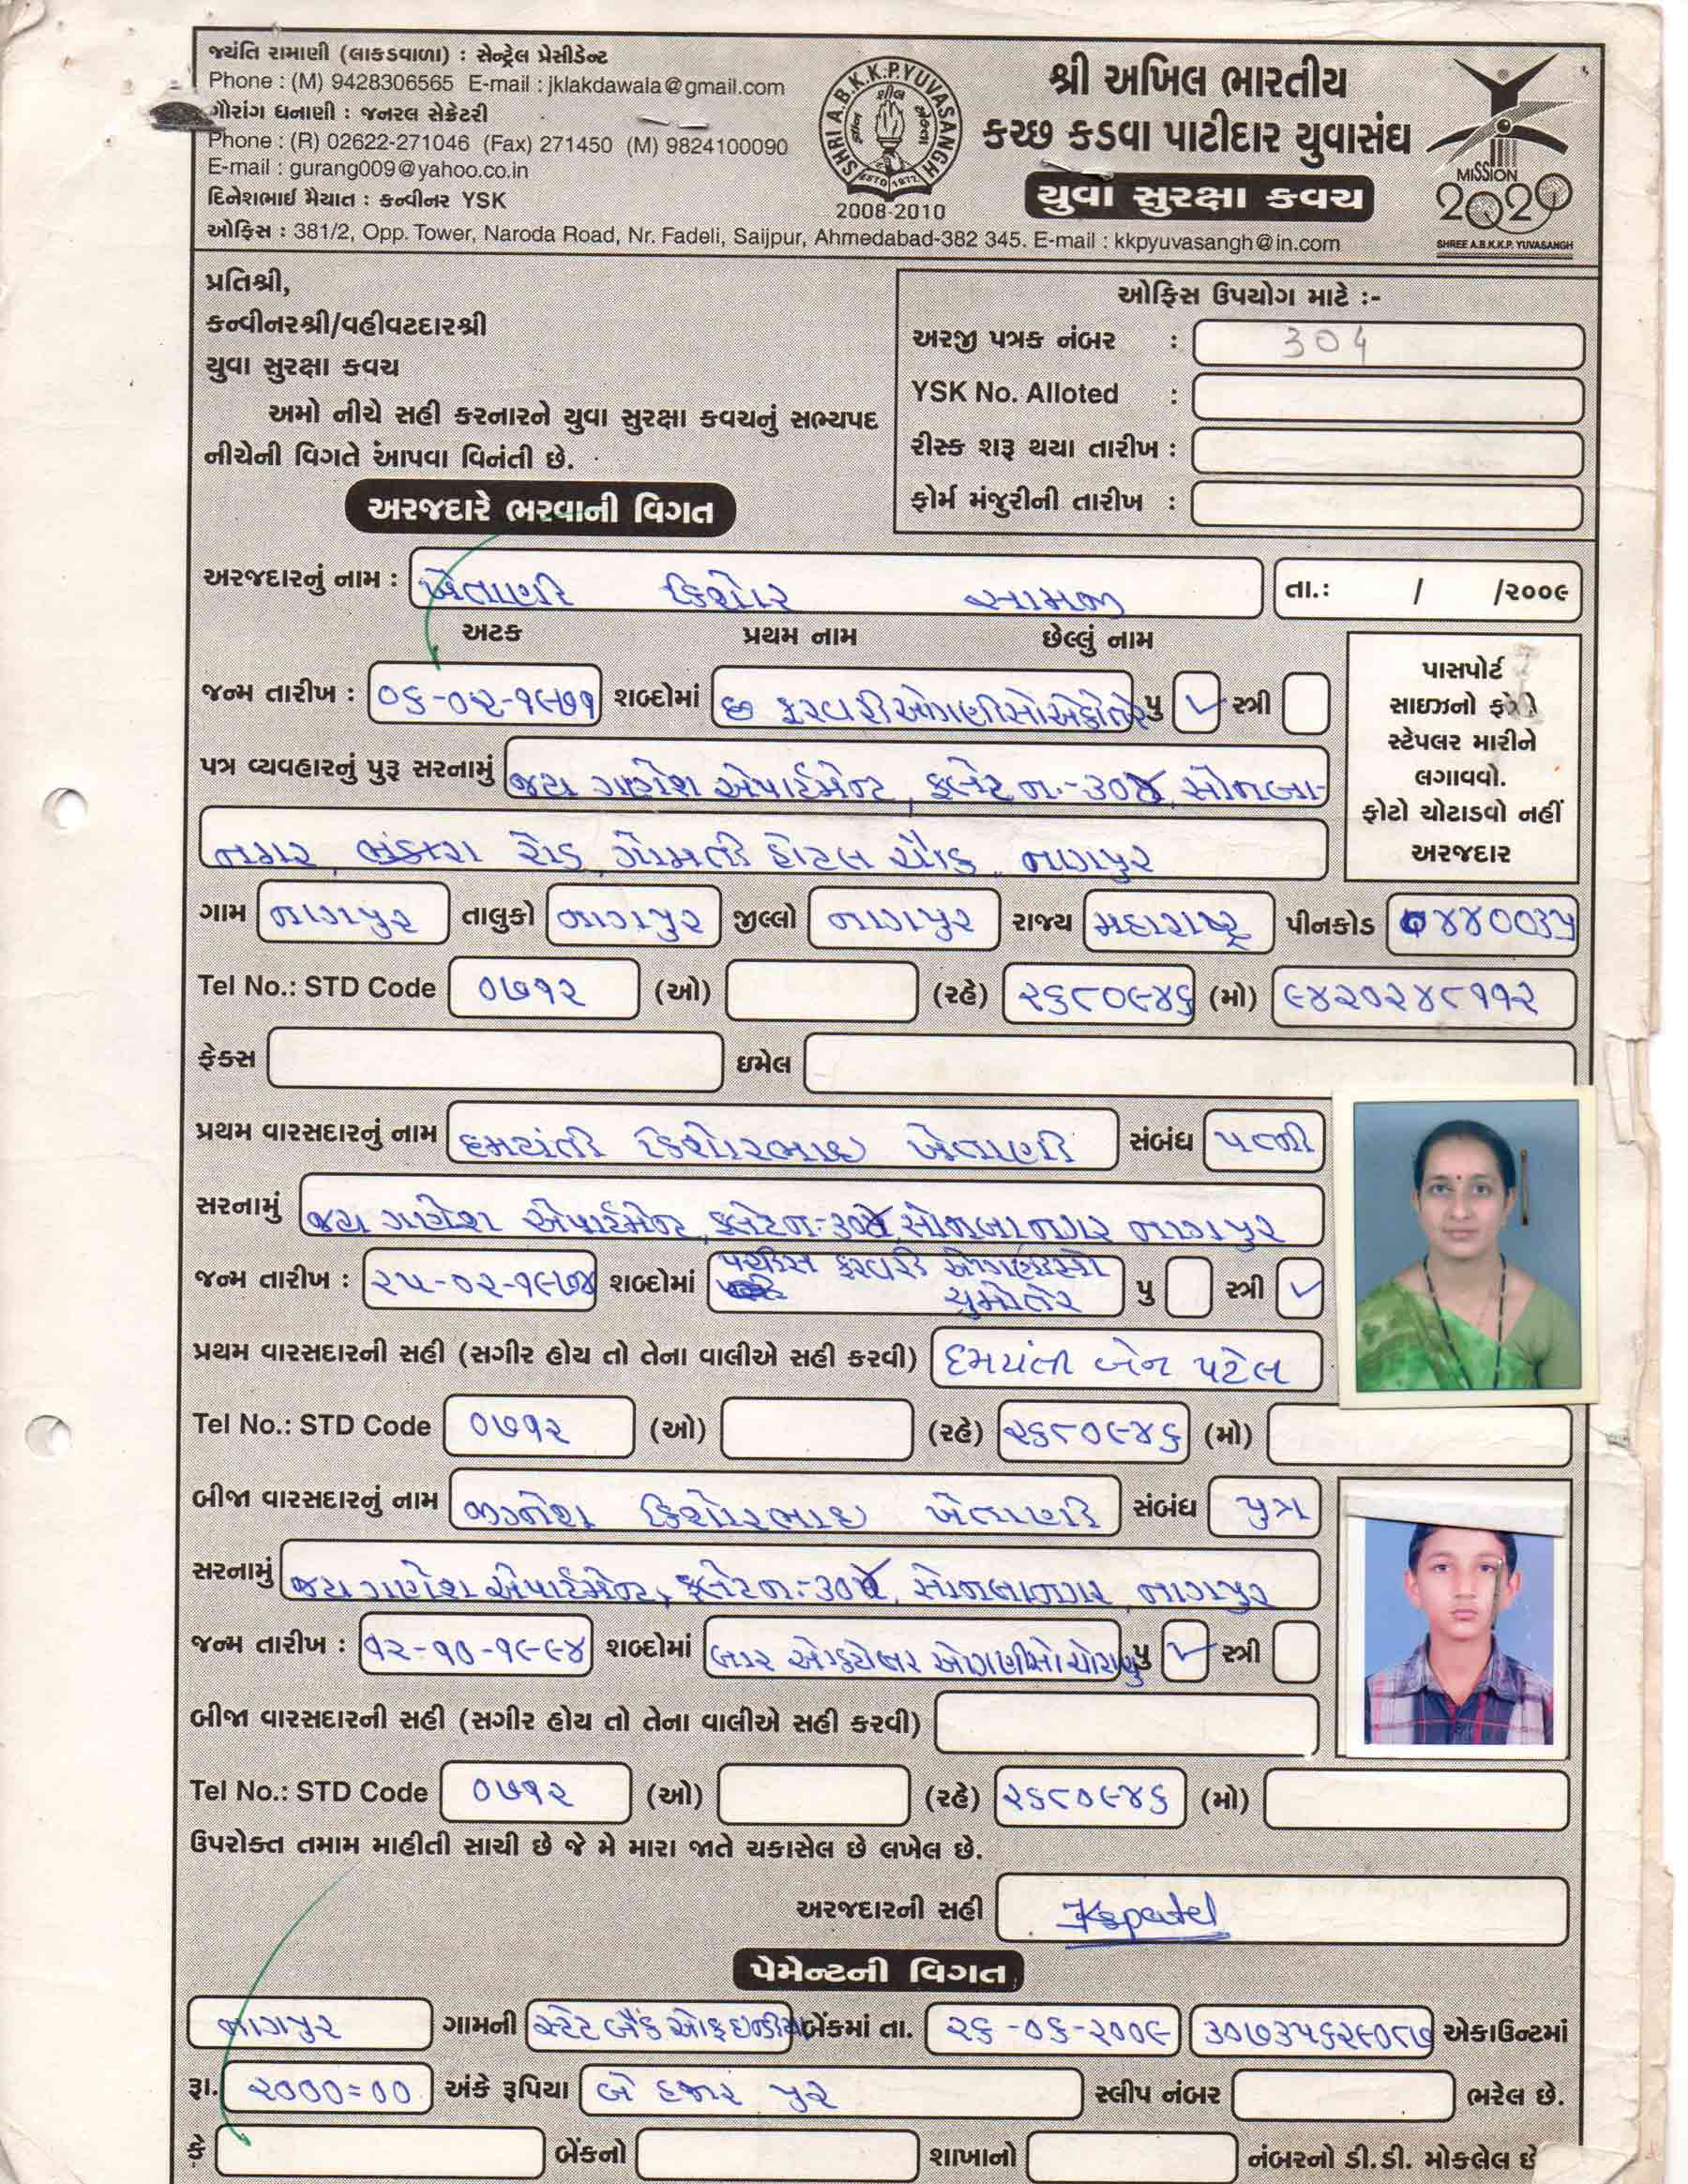 જયંતિ રામાણી (લાકડાવાળા) : સેન્ટ્રેલ પ્રેસીડેન્ટ
Phone : (M) 9428306565 E-mail : jklakdawala@gmail.com
ગૌરાંગ ધનાણી : જનરલ સેક્રેટરી
Phone : (R) 02622-271046 (Fax) 271450 (M) 9824100090
E-mail : gurang009@yahoo.co.in
દિનેશભાઈ મૈયાત : કન્વીનર YSK
ઓફિસ : 381/2, Opp. Tower, Naroda Road, Nr. Fadeli, Saijpur, Ahmedabad-382 345. E-mail : kkpyuvasangh@in.com
SHRI A.B.K.K.P. YUVASANGH
ESTD 1972
2008-2010
શ્રી અખિલ ભારતીય
કચ્છ કડવા પાટીદાર યુવાસંઘ
યુવા સુરક્ષા કવચ
MISSION
2020
SHREE A.B.K.K.P. YUVASANGH
પ્રતિશ્રી,
કન્વીનરશ્રી/વહીવટદારશ્રી
યુવા સુરક્ષા કવચ
અમો નીચે સહી કરનારને યુવા સુરક્ષા કવચનું સભ્યપદ
નીચેની વિગતે આપવા વિનંતી છે.
ઓફિસ ઉપયોગ માટે :-
અરજી પત્રક નંબર : 304
YSK No. Alloted :
રીસ્ક શરૂ થયા તારીખ :
ફોર્મ મંજુરીની તારીખ :
અરજદારે ભરવાની વિગત
અરજદારનું નામ : ખેતાણી કિશોર સામજી તા.: / /૨૦૦૯
અટક પ્રથમ નામ છેલ્લું નામ
જન્મ તારીખ : ૦૬-૦૨-૧૯૭૧ શબ્દોમાં છ ફરવરી ઓગણીસો એકોતેર પુ ✓ સ્ત્રી
પાસપોર્ટ
સાઇઝનો ફોટો
સ્ટેપલર મારીને
લગાવવો.
ફોટો ચોટાડવો નહીં
અરજદાર
પત્ર વ્યવહારનું પુરૂ સરનામું જય ગણેશ એપાર્ટમેન્ટ, ફ્લેટ ન.-૩૦૪, સોનબા-
નગર, ભંડારા રોડ, ગોમતી હોટલ ચૌક, નાગપુર
ગામ નાગપુર તાલુકો નાગપુર જીલ્લો નાગપુર રાજ્ય મહારાષ્ટ્ર પીનકોડ ૪૪૦૦૩૫
Tel No.: STD Code ૦૭૧૨ (ઓ) (રહે) ૨૬૮૦૯૪૬ (મો) ૯૪૨૦૨૪૮૧૧૨
ફેક્સ ઇમેલ
પ્રથમ વારસદારનું નામ દમયંતી કિશોરભાઇ ખેતાણી સંબંધ પત્ની
સરનામું જય ગણેશ એપાર્ટમેન્ટ, ફ્લેટ ન.-૩૦૪, સોનબા નગર નાગપુર
જન્મ તારીખ : ૨૫-૦૨-૧૯૭૪ શબ્દોમાં પચીસ ફરવરી ઓગણીસો ચુમોતેર પુ સ્ત્રી ✓
પ્રથમ વારસદારની સહી (સગીર હોય તો તેના વાલીએ સહી કરવી) દમયંતી બેન પટેલ
Tel No.: STD Code ૦૭૧૨ (ઓ) (રહે) ૨૬૮૦૯૪૬ (મો)
બીજા વારસદારનું નામ કિશોરભાઇ ખેતાણી સંબંધ પુત્ર
સરનામું જય ગણેશ એપાર્ટમેન્ટ, ફ્લેટ ન.-૩૦૪, સોનબા નગર, નાગપુર
જન્મ તારીખ : ૧૨-૧૦-૧૯૯૪ શબ્દોમાં બાર ઓક્ટોબર ઓગણીસો ચોરાણુ પુ ✓ સ્ત્રી
બીજા વારસદારની સહી (સગીર હોય તો તેના વાલીએ સહી કરવી)
Tel No.: STD Code ૦૭૧૨ (ઓ) (રહે) ૨૬૮૦૯૪૬ (મો)
ઉપરોક્ત તમામ માહીતી સાચી છે જે મે મારા જાતે ચકાસેલ છે લખેલ છે.
અરજદારની સહી Kspatel
પેમેન્ટની વિગત
નાગપુર ગામની સ્ટેટ બૈંક ઓફ ઇન્ડીયા બેંકમાં તા. ૨૬-૦૬-૨૦૦૯ ૩૦૭૩૫૬૨૯૦૮૭ એકાઉન્ટમાં
રૂા. ૨૦૦૦=૦૦ અંકે રૂપિયા બે હજાર પુરા સ્લીપ નંબર ભરેલ છે.
કે બેંકનો શાખાનો નંબરનો ડી.ડી. મોકલેલ છે